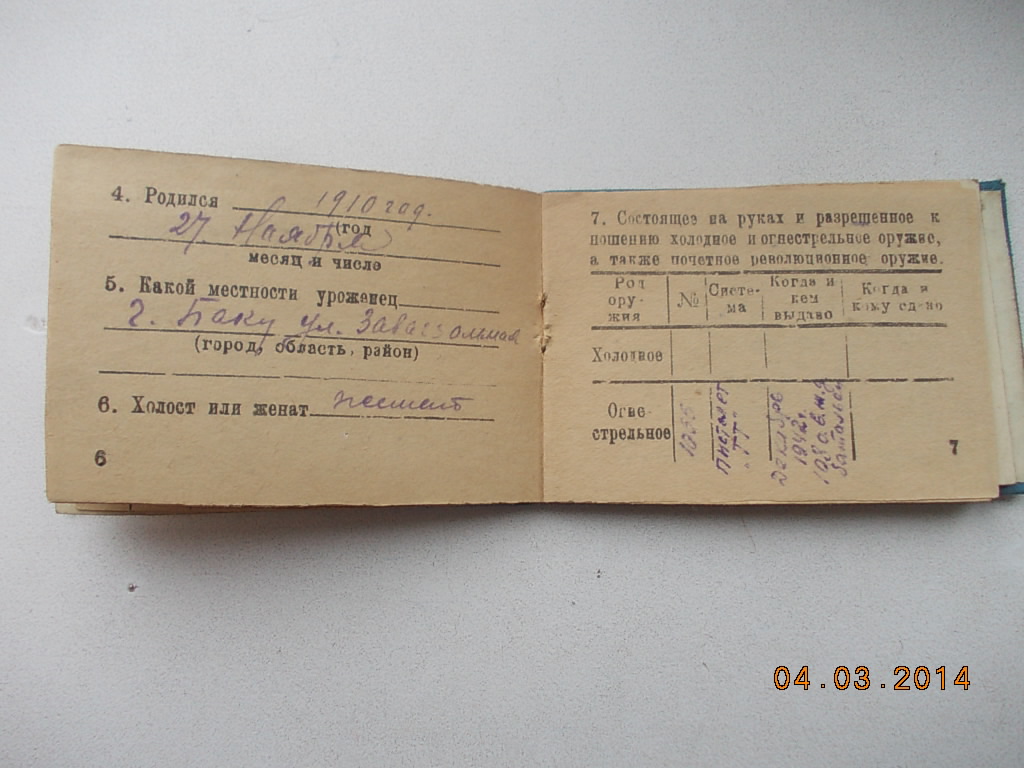 4. Родился 1910 год.
(год
27 Наября
месяц и число
5. Какой местности уроженец
г. Баку ул. Завагзольная
(город, область, район)
6. Холост или женат
6
7. Состоящее на руках и разрешенное к
ношению холодное и огнестрельное оружие,
а также почетное революционное оружие.
Род ору- жия
№
Систе- ма
Когда и кем выдано
Когда и кому сдано
Холодное
Огне- стрельное
Пистолет "ТТ"
Декабрь 1942г.
батальон
7
04.03.2014